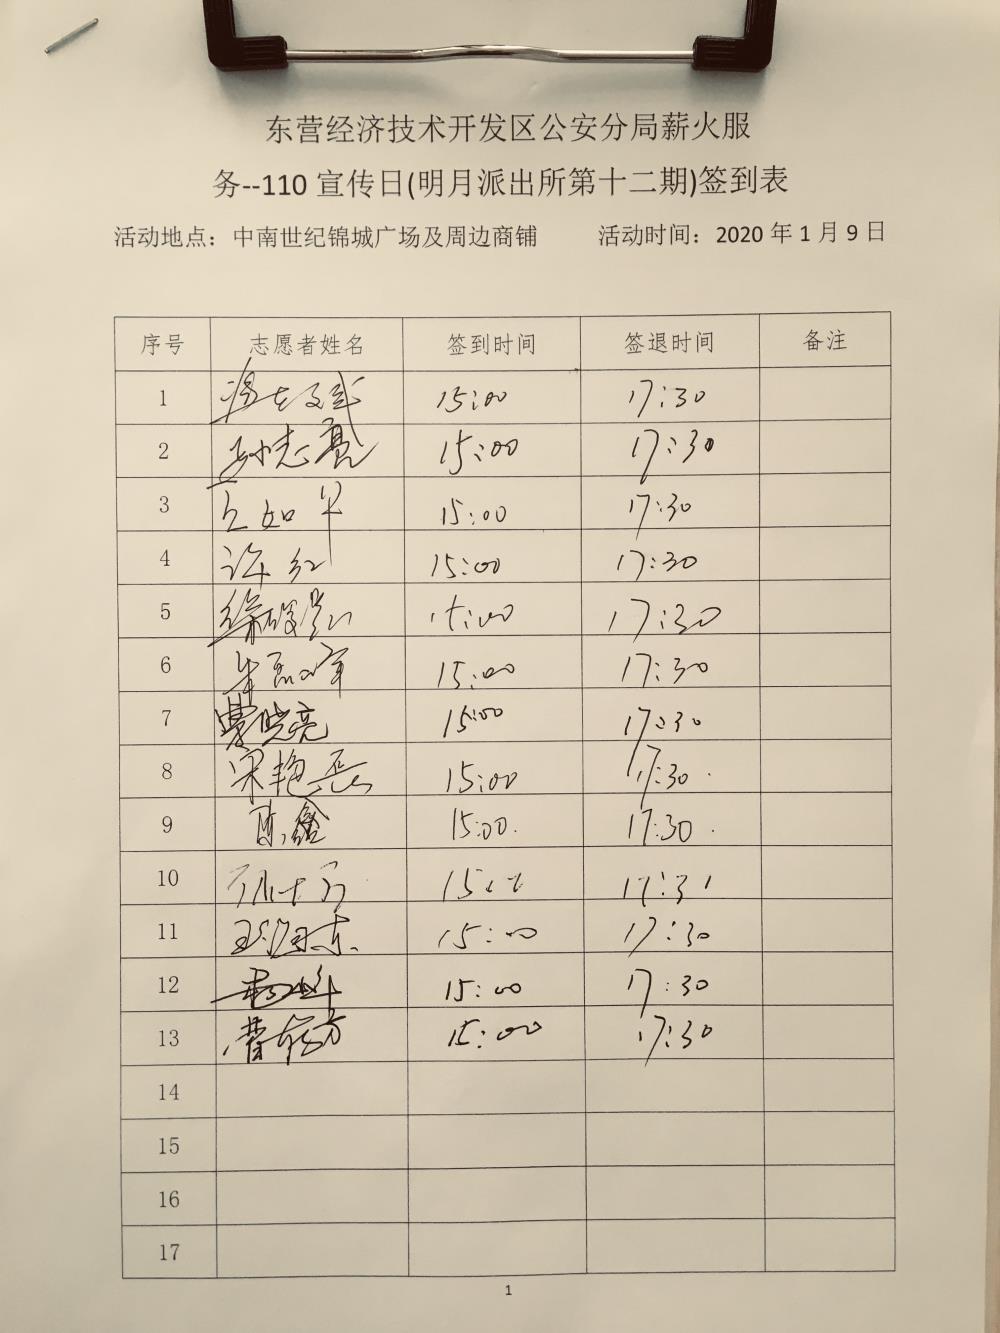 东营经济技术开发区公安分局薪火服
务--110 宣传日(明月派出所第十二期)签到表
活动地点：中南世纪锦城广场及周边商铺 活动时间：2020 年 1 月 9 日
序号 志愿者姓名 签到时间 签退时间 备注
1 15:00 17:30
2 孙志亮 15:00 17:30
3 15:00 17:30
4 许红 15:00 17:30
5 15:00 17:30
6 15:00 17:30
7 晓亮 15:00 17:30
8 宋艳磊 15:00 17:30
9 陈鑫 15:00 17:30
10 17:31
11 15:00 17:30
12 15:00 17:30
13 曹 15:00 17:30
14
15
16
17
1